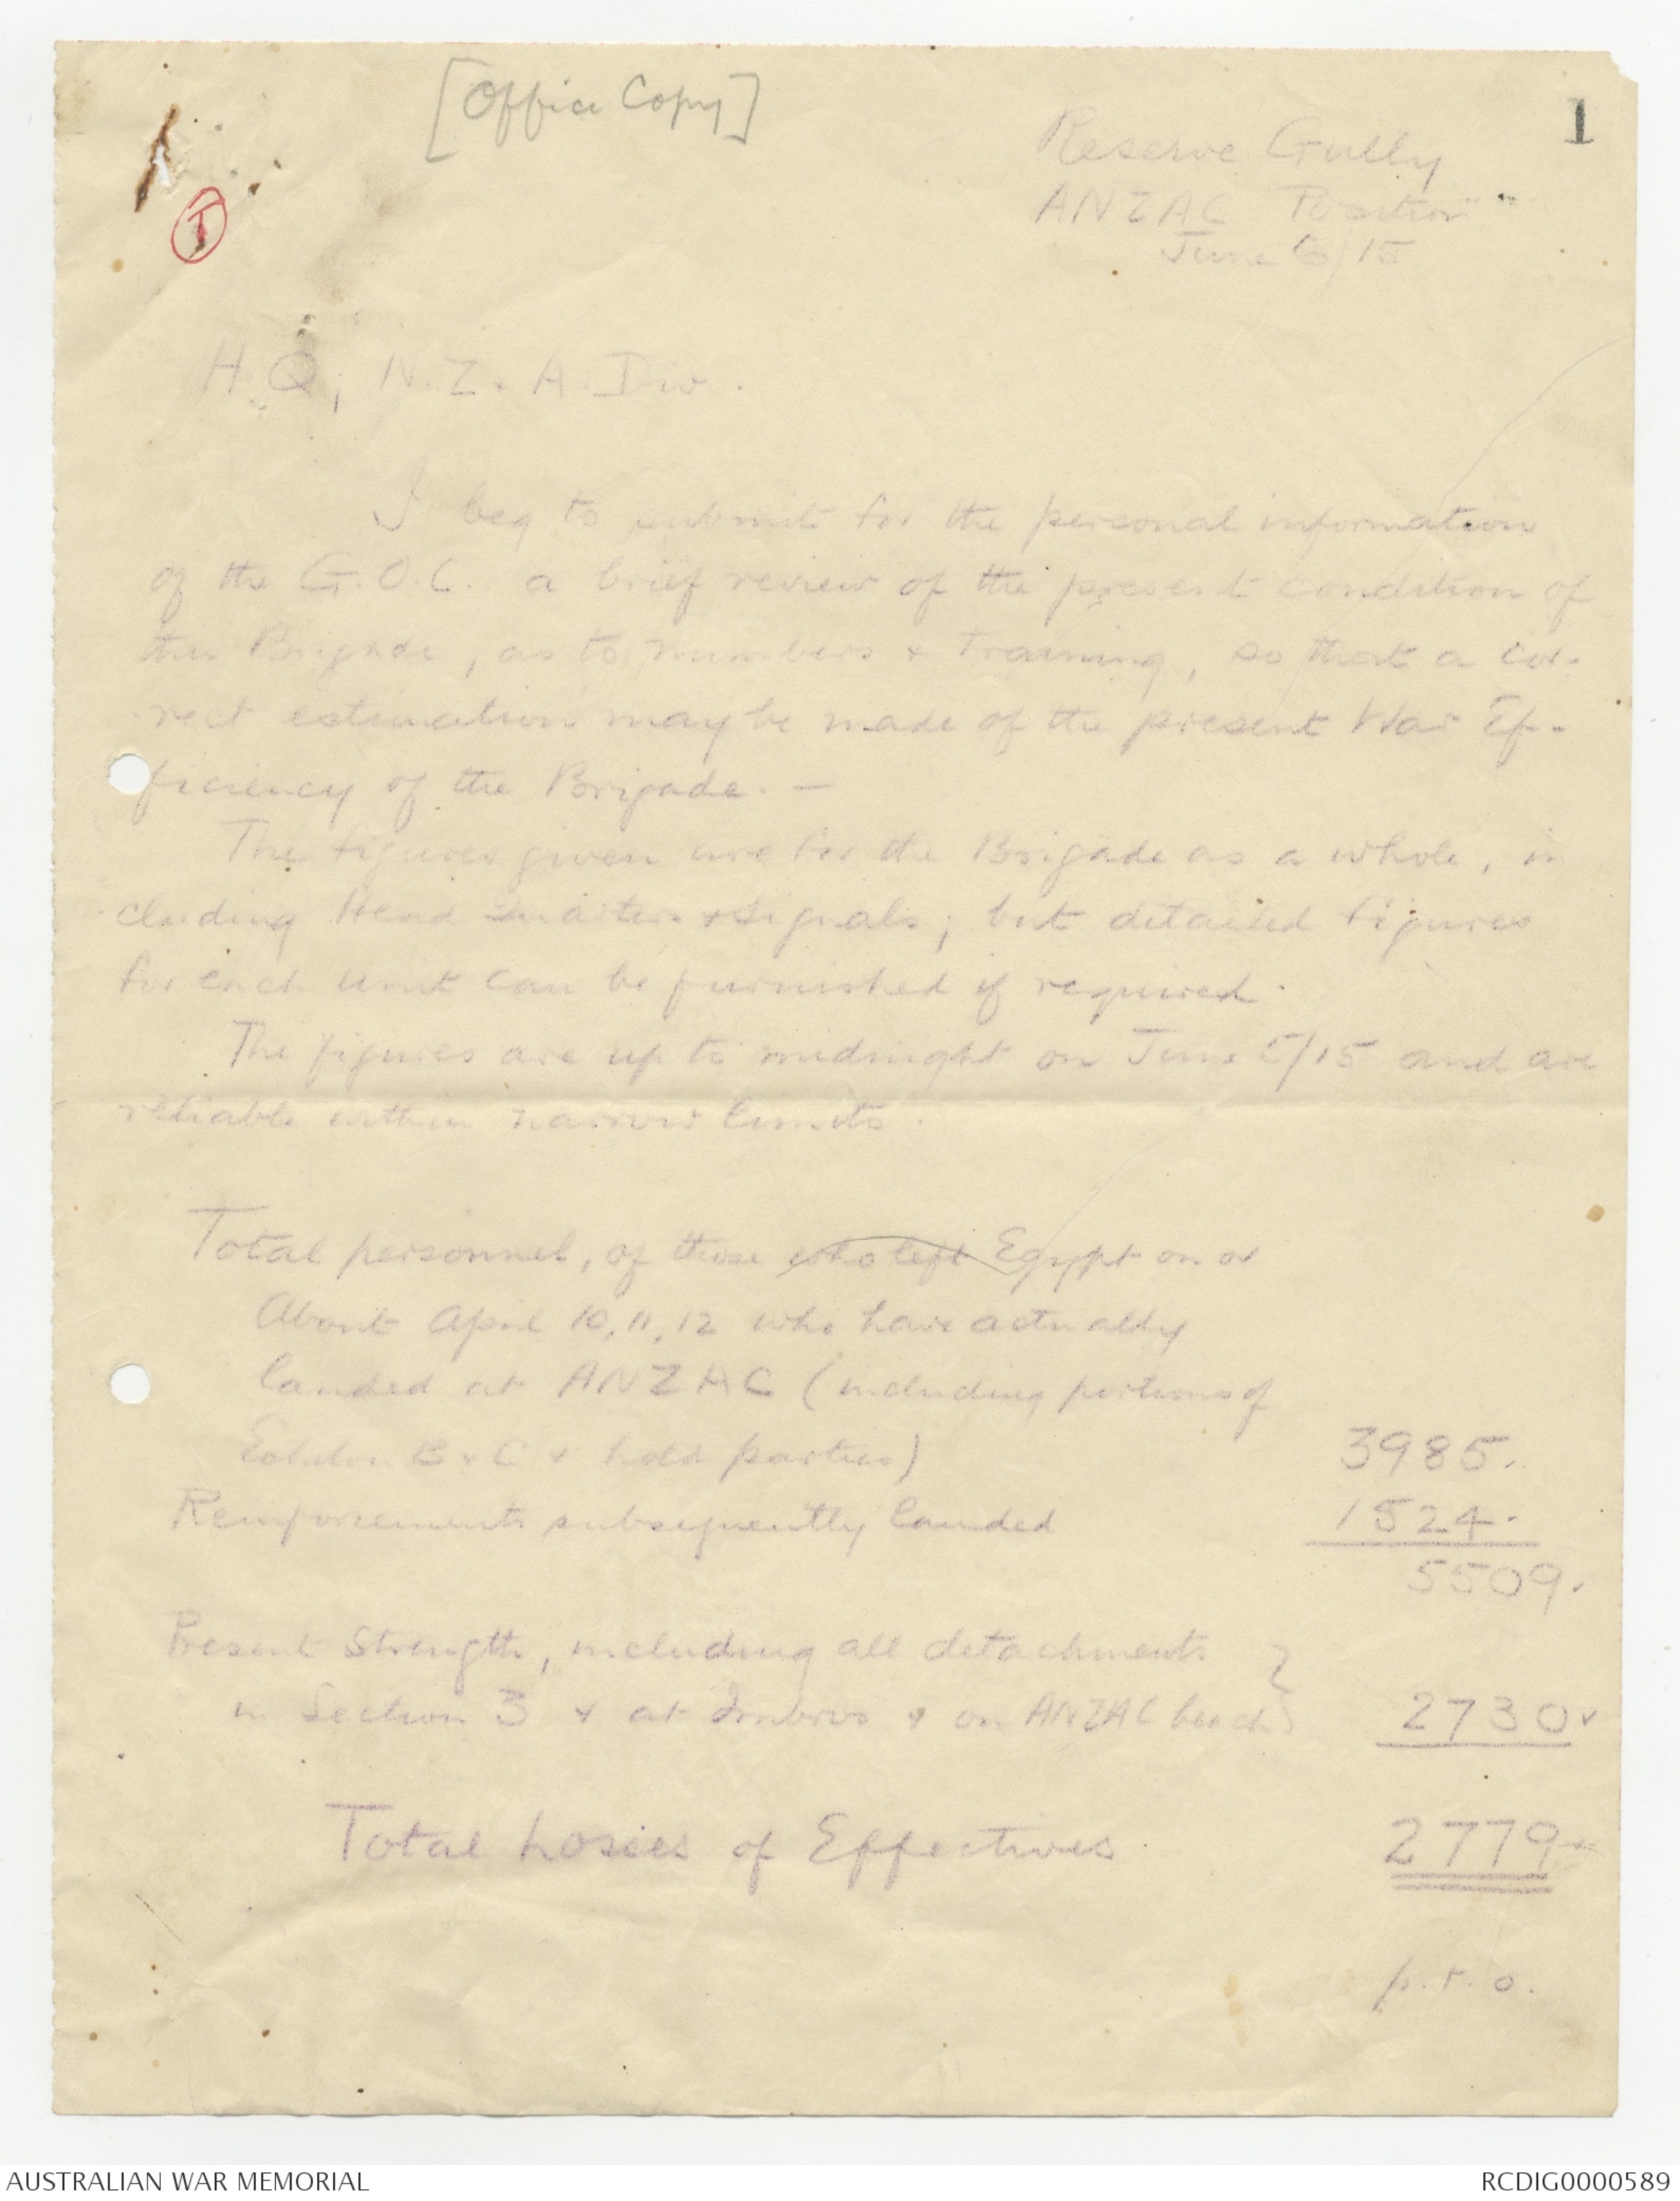 [Office Copy]
1
Reserve Gully
ANZAC Position
June 6/15
I
H.Q; N.Z. A. Div.
I beg to submit for the personal information
of the G.O.C. a brief review of the present condition of
this Brigade, as to numbers & training, so that a cor-
rect estimation may be made of the present War Ef-
ficiency of the Brigade. —
The figures given are for the Brigade as a whole, in
cluding Head Quarters & Signals; but detailed figures
for each unit can be furnished if required.
The figures are up to midnight on June 5/15 and are
reliable within narrow limits.
Total personnel, of those who left Egypt on or
About April 10, 11, 12 who have actually
landed at ANZAC (including portions of
Echelon B & C & hold parties) 3985.
Reinforcements subsequently landed 1524.
5509.
Present Strength, including all detachments
in Section 3 & at Imbros & on ANZAC beach } 2730
Total Losses of Effectives. 2779
p.t.o.
AUSTRALIAN WAR MEMORIAL
RCDIG0000589